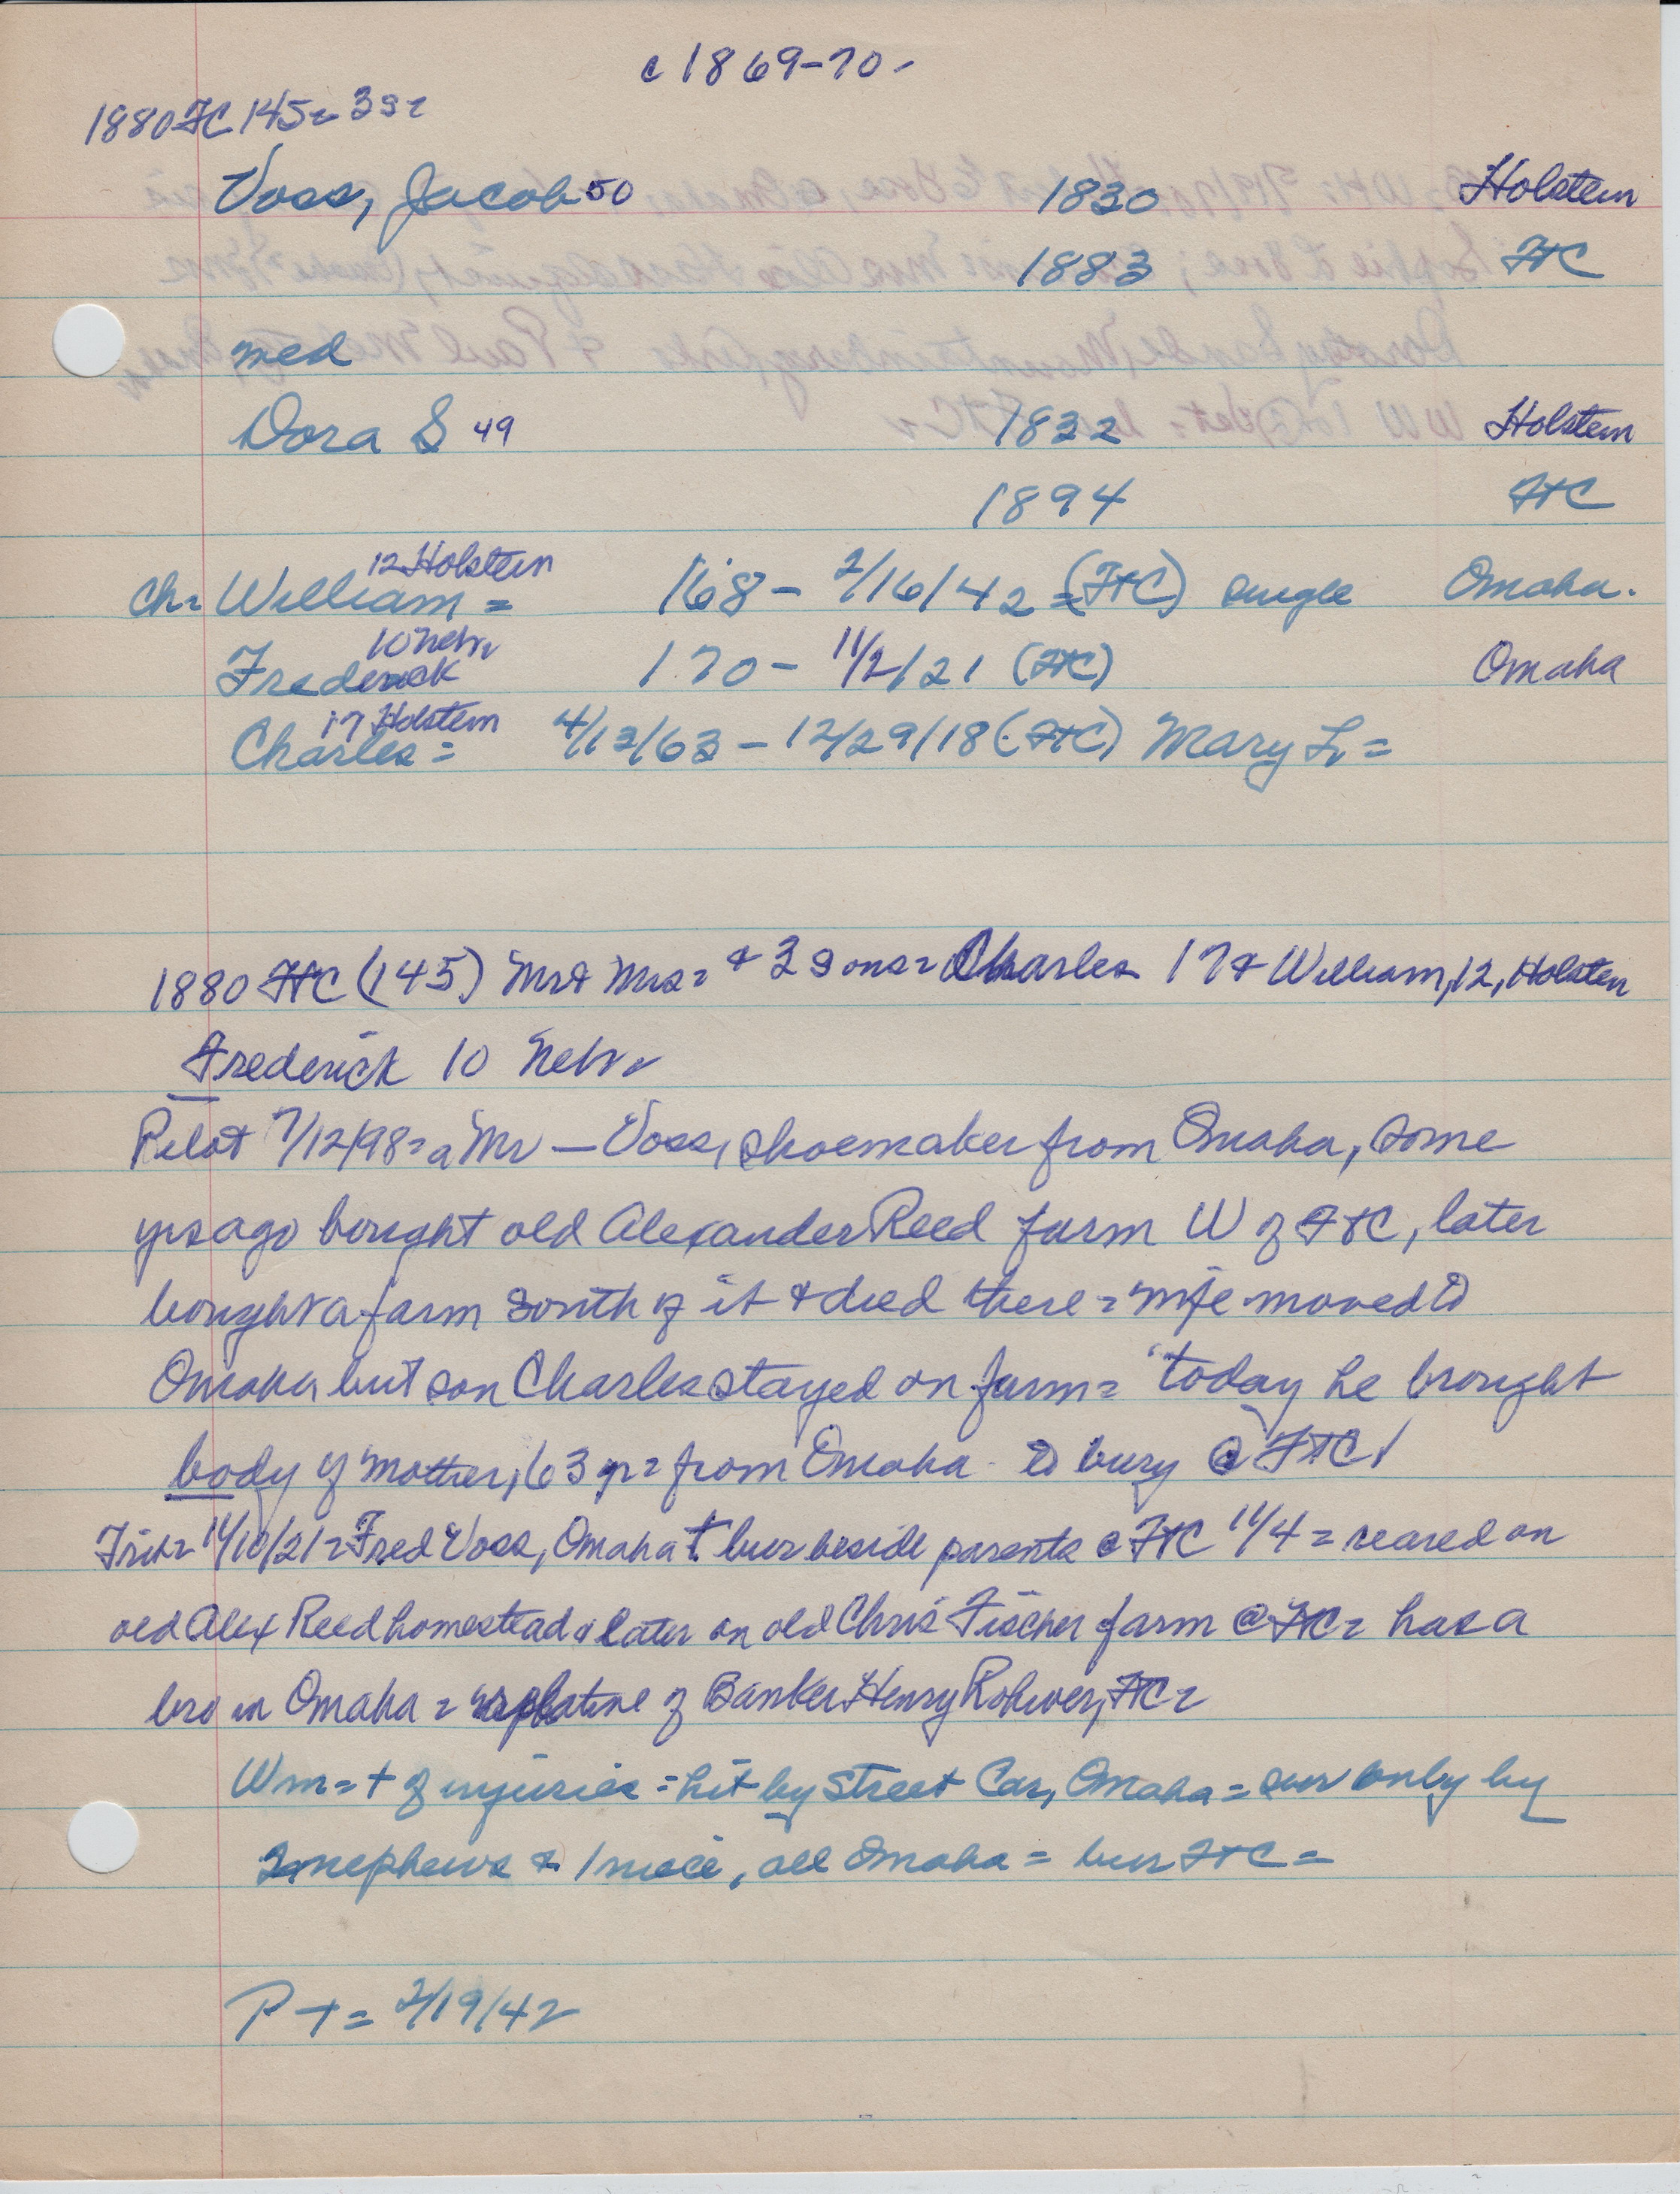 c 1869-70-
1880 FtC 145= 3s=
Voss, Jacob 50 1830 Holstein
1883 FtC
med
Dora S 49 1832 Holstein
1894 FtC
12 Holstein
Ch= William = 1/68 - 2/16/42 = (FtC) single Omaha.
10 Nebr
Frederick 1.70 - 11/2/21 (FtC) Omaha
17 Holstein
Charles = 4/13/63 - 12/29/18 (FtC) Mary L =
1880 FtC (145) Mr & Mrs = + 3 sons = Charles 17 & William, 12, Holstein
Frederick 10 Nebr
Pilot 7/12/98 = a Mr — Voss, shoemaker from Omaha, some
yrs ago bought old Alexander Reed farm W of FtC, later
bought a farm south of it & died there = wife moved to
Omaha but son Charles stayed on farm = "today he brought
body of mother, 63 yr = from Omaha to bury @ FtC
Trib = 11/10/21 = Fred Voss, Omaha † bur beside parents @ FtC 11/4 = reared on
old Alex Reed homestead & later on old Chris Fischer farm @ FtC = has a
bro in Omaha = of Banker Henry Rohwer, FtC =
Wm = + of injuries = hit by Street Car, Omaha = sur only by
2 nephews & 1 niece, all Omaha = bur FtC =
P T = 2/19/42